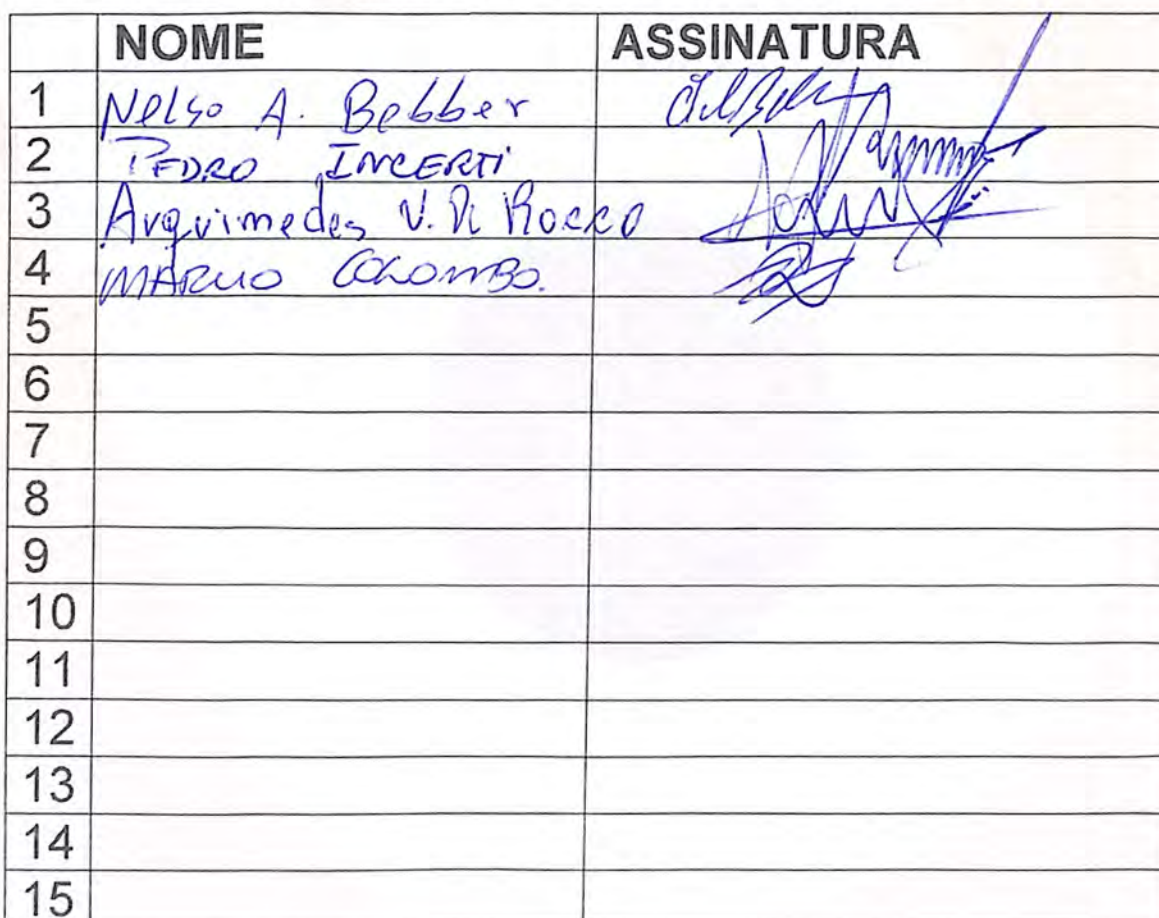 NOME ASSINATURA
1 Nelso A. Bebber
2 PEDRO INCERTI
3 Arquimedes V. Di Rocco
4 MARCIO COLOMBO.
5
6
7
8
9
10
11
12
13
14
15